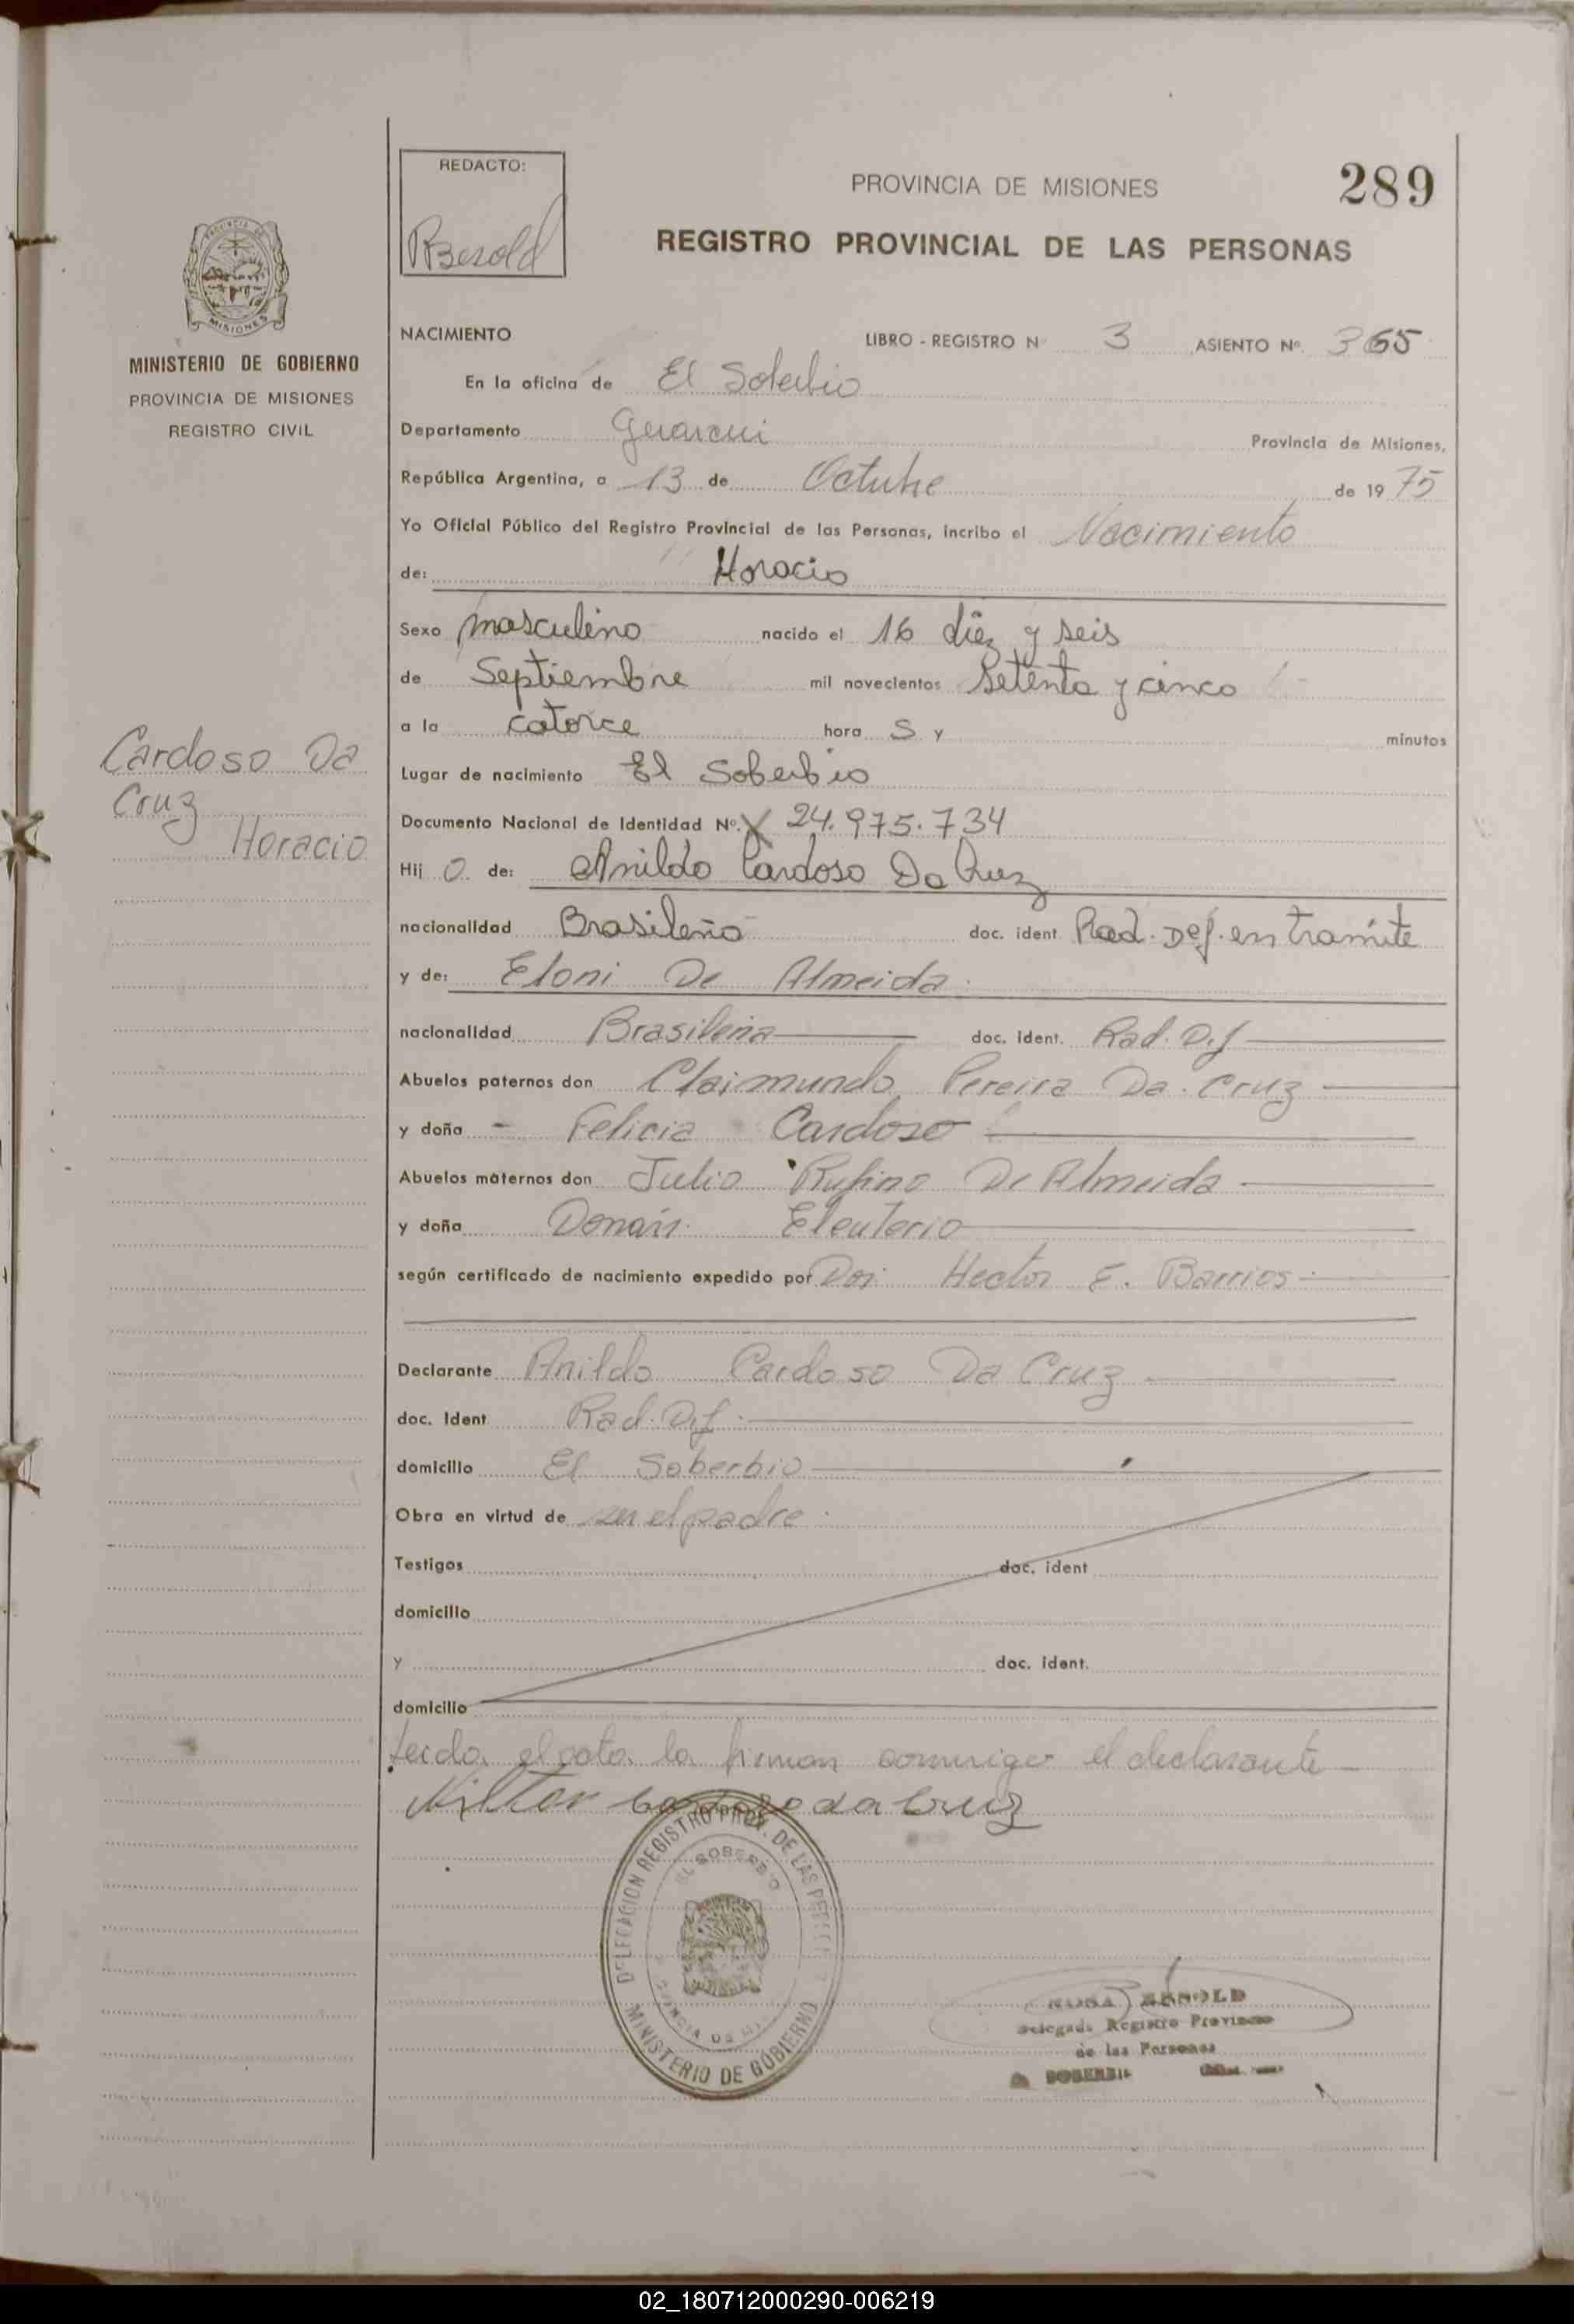 REDACTO:
RBesold
PROVINCIA DE MISIONES
289
REGISTRO PROVINCIAL DE LAS PERSONAS
MINISTERIO DE GOBIERNO
PROVINCIA DE MISIONES
REGISTRO CIVIL
NACIMIENTO LIBRO - REGISTRO N° 3 ASIENTO Nº. 365
En la oficina de El Soberbio
Departamento Guarani Provincia de Misiones,
República Argentina, a 13 de Octubre de 1975
Yo Oficial Público del Registro Provincial de las Personas, incribo el Nacimiento
de: Horacio
Sexo masculino nacido el 16 diez y seis
de Septiembre mil novecientos setenta y cinco
a la catorce hora s y minutos
Lugar de nacimiento El Soberbio
Documento Nacional de Identidad Nº. 24.975.734
Hij o de: Anildo Cardoso Da Cruz
nacionalidad Brasileño doc. ident Rad. Def. en tramite
y de: Eloni De Almeida
nacionalidad Brasileña doc. ident. Rad. Def
Abuelos paternos don Claimundo Pereira Da Cruz
y doña Felicia Cardoso
Abuelos maternos don Julio Rufino De Almeida
y doña Eleuterio
según certificado de nacimiento expedido por Hector E. Barrios
Declarante Anildo Cardoso Da Cruz
doc. Ident Rad. Def
domicilio El Soberbio
Obra en virtud de ser el padre
Testigos doc. ident
domicilio
y doc. ident.
domicilio
Leida el acta la firman conmigo el declarante
Cardoso da Cruz
Cardoso Da
Cruz
Horacio
DELEGACION REGISTRO PROV. DE LAS PERSON
EL SOBERBIO
PROVINCIA DE MI
MINISTERIO DE GOBIERNO
BESOLD
Delegada Registro Provincial
de las Personas
SOBERBIO
02_180712000290-006219